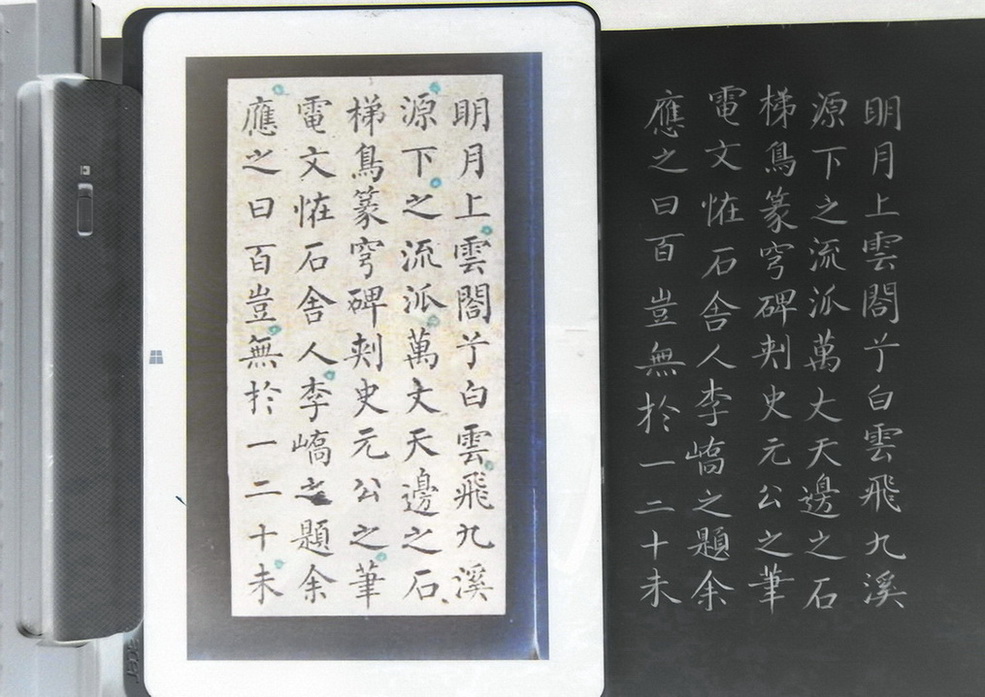 明月上雲閤兮白雲飛九溪
源下之流派萬丈天邊之石
梯鳥篆穹碑刾史元公之筆
電文恠石舍人李嶠之題余
應之曰百豈無於一二十未
明月上雲閤兮白雲飛九溪
源下之流派萬丈天邊之石
梯鳥篆穹碑刾史元公之筆
電文恠石舍人李嶠之題余
應之曰百豈無於一二十未
acer